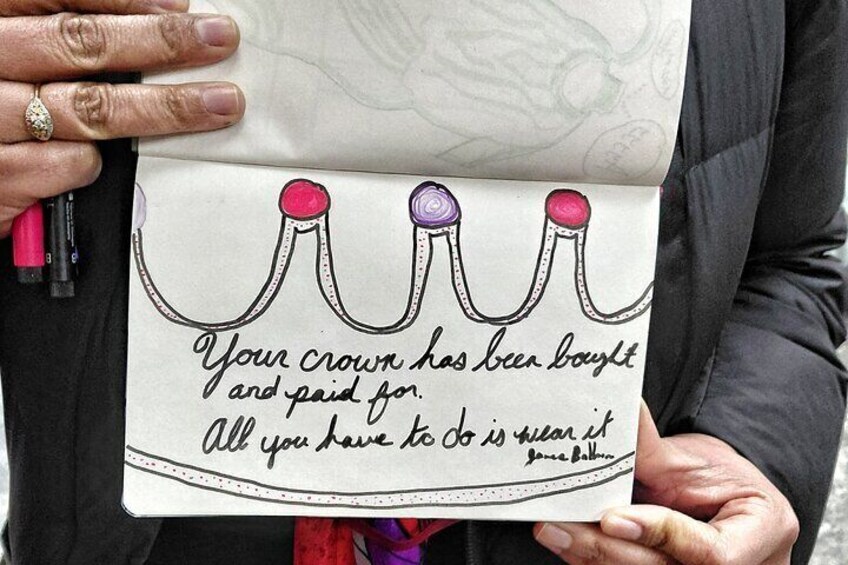 Your crown has been bought
and paid for.
All you have to do is wear it
James Baldwin